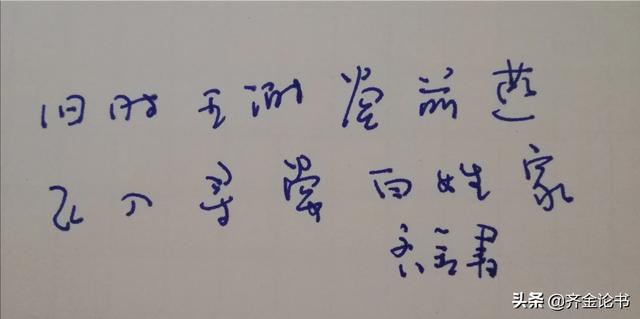 旧时王谢堂前燕
飞入寻常百姓家
齐金书
头条 @齐金论书